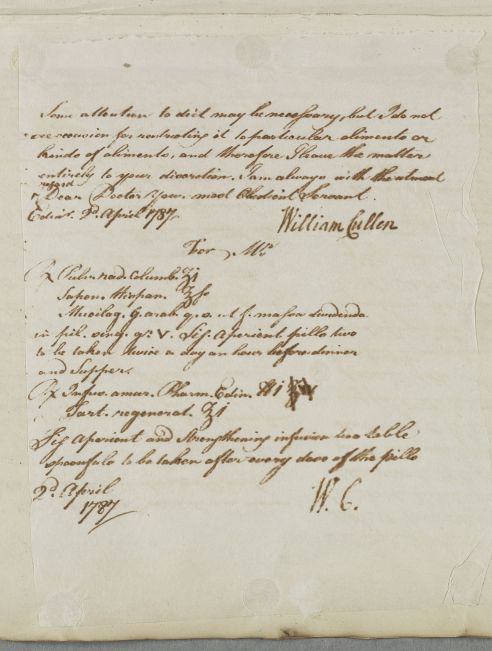 Some attention to diet may be necessary, but I do not
see occasion for restricting it to particular aliments or
kinds of aliments, and therefore I leave the matter
entirely to your discretion. I am always with the utmost
regard
Dear Doctor Your most Obedient Servant.
Edinr. 2d. April 1787.
William Cullen
For Mr.
℞ Pulv. rad. Columb. ʒi
Sapon. Hispan. ʒſs
Mucilag. G. arab. q. s. ut f. massa dividenda
in pil. sing. gr. V. Sig. Aperient pills two
to be taken twice a day an hour before dinner
and Supper.
℞ Infus. amar. Pharm. Edin. ℔i
Tart. regenerat. ʒi
Sig. Aperient and Strengthening infusion two table
spoonfuls to be taken after every dose of the pills
2d. April
1787
W. C.